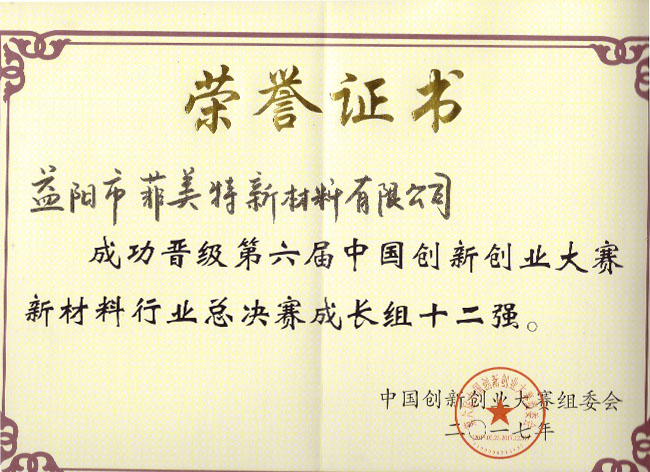 荣誉证书
益阳市菲美特新材料有限公司
成功晋级第六届中国创新创业大赛
新材料行业总决赛成长组十二强。
中国创新创业大赛组委会
二〇一七年